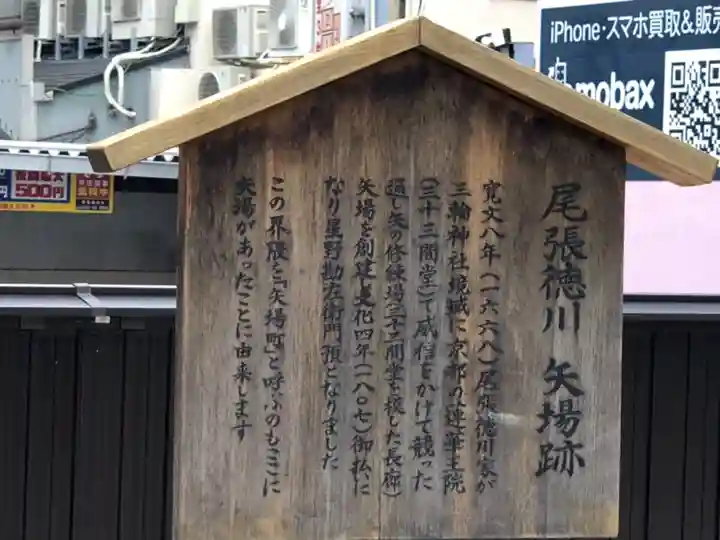 尾張徳川 矢場跡
寛文八年(一六六八)尾張徳川家が
三輪神社境域に京都の「蓮華王院
(三十三間堂)で威信をかけて競った
通し矢の修練場(三十三間堂を模した長廊)
矢場を創建 文化四年(一八〇七)御払いに
なり星野勘左衛門 預となりました
この界隈を「矢場町」と呼ぶのもここに
矢場があったことに由来します
iPhone・スマホ買取&販売
mobax
500円